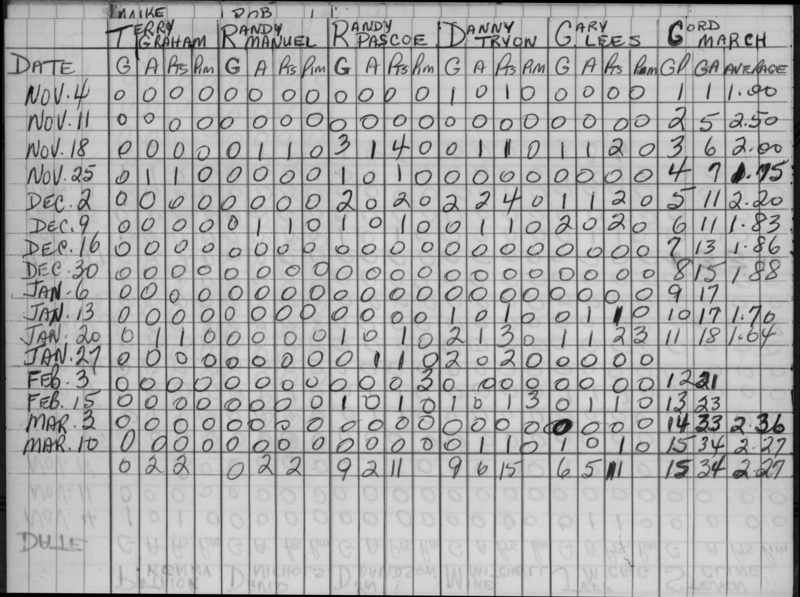 MAIKE DOB
TERRY GRAHAM RANDY MANUEL RANDY PASCOE DANNY TRYON GARY LEES GORD MARCH
DATE G A Pts Pim G A Pts Pim G A Pts Pim G A Pts Pim G A Pts Pim GP GA AVERAGE
NOV. 4 0 0 0 0 0 0 0 0 0 0 0 0 1 0 1 0 0 0 0 0 1 1 1.00
NOV. 11 0 0 0 0 0 0 0 0 0 0 0 0 0 0 0 0 0 0 0 0 2 5 2.50
NOV. 18 0 0 0 0 0 1 1 0 3 1 4 0 0 1 1 0 1 1 2 0 3 6 2.00
NOV. 25 0 1 1 0 0 0 0 0 1 0 1 0 0 0 0 0 0 0 0 0 4 7 1.75
DEC. 2 0 0 0 0 0 0 0 0 2 0 2 0 2 2 4 0 1 1 2 0 5 11 2.20
DEC. 9 0 0 0 0 0 1 1 0 1 0 1 0 0 1 1 0 2 0 2 0 6 11 1.83
DEC. 16 0 0 0 0 0 0 0 0 0 0 0 0 0 0 0 0 0 0 0 0 7 13 1.86
DEC. 30 0 0 0 0 0 0 0 0 0 0 0 0 0 0 0 0 0 0 0 0 8 15 1.88
JAN. 6 0 0 0 0 0 0 0 0 0 0 0 0 0 0 0 0 0 0 0 0 9 17
JAN. 13 0 0 0 0 0 0 0 0 0 0 0 0 1 0 1 0 0 1 1 0 10 17 1.70
JAN. 20 0 1 1 0 0 0 0 0 1 0 1 0 2 1 3 0 1 1 2 3 11 18 1.64
JAN. 27 0 0 0 0 0 0 0 0 0 1 1 0 2 0 2 0 0 0 0 0
FEB. 3 0 0 0 0 0 0 0 0 0 0 0 3 0 0 0 0 0 0 0 0 12 21
FEB. 15 0 0 0 0 0 0 0 0 1 0 1 0 1 0 1 3 0 1 1 0 13 23
MAR. 3 0 0 0 0 0 0 0 0 0 0 0 0 0 0 0 0 0 0 0 0 14 33 2.36
MAR. 10 0 0 0 0 0 0 0 0 0 0 0 0 0 1 1 0 1 0 1 0 15 34 2.27
0 2 2 0 2 2 9 2 11 9 6 15 6 5 11 15 34 2.27